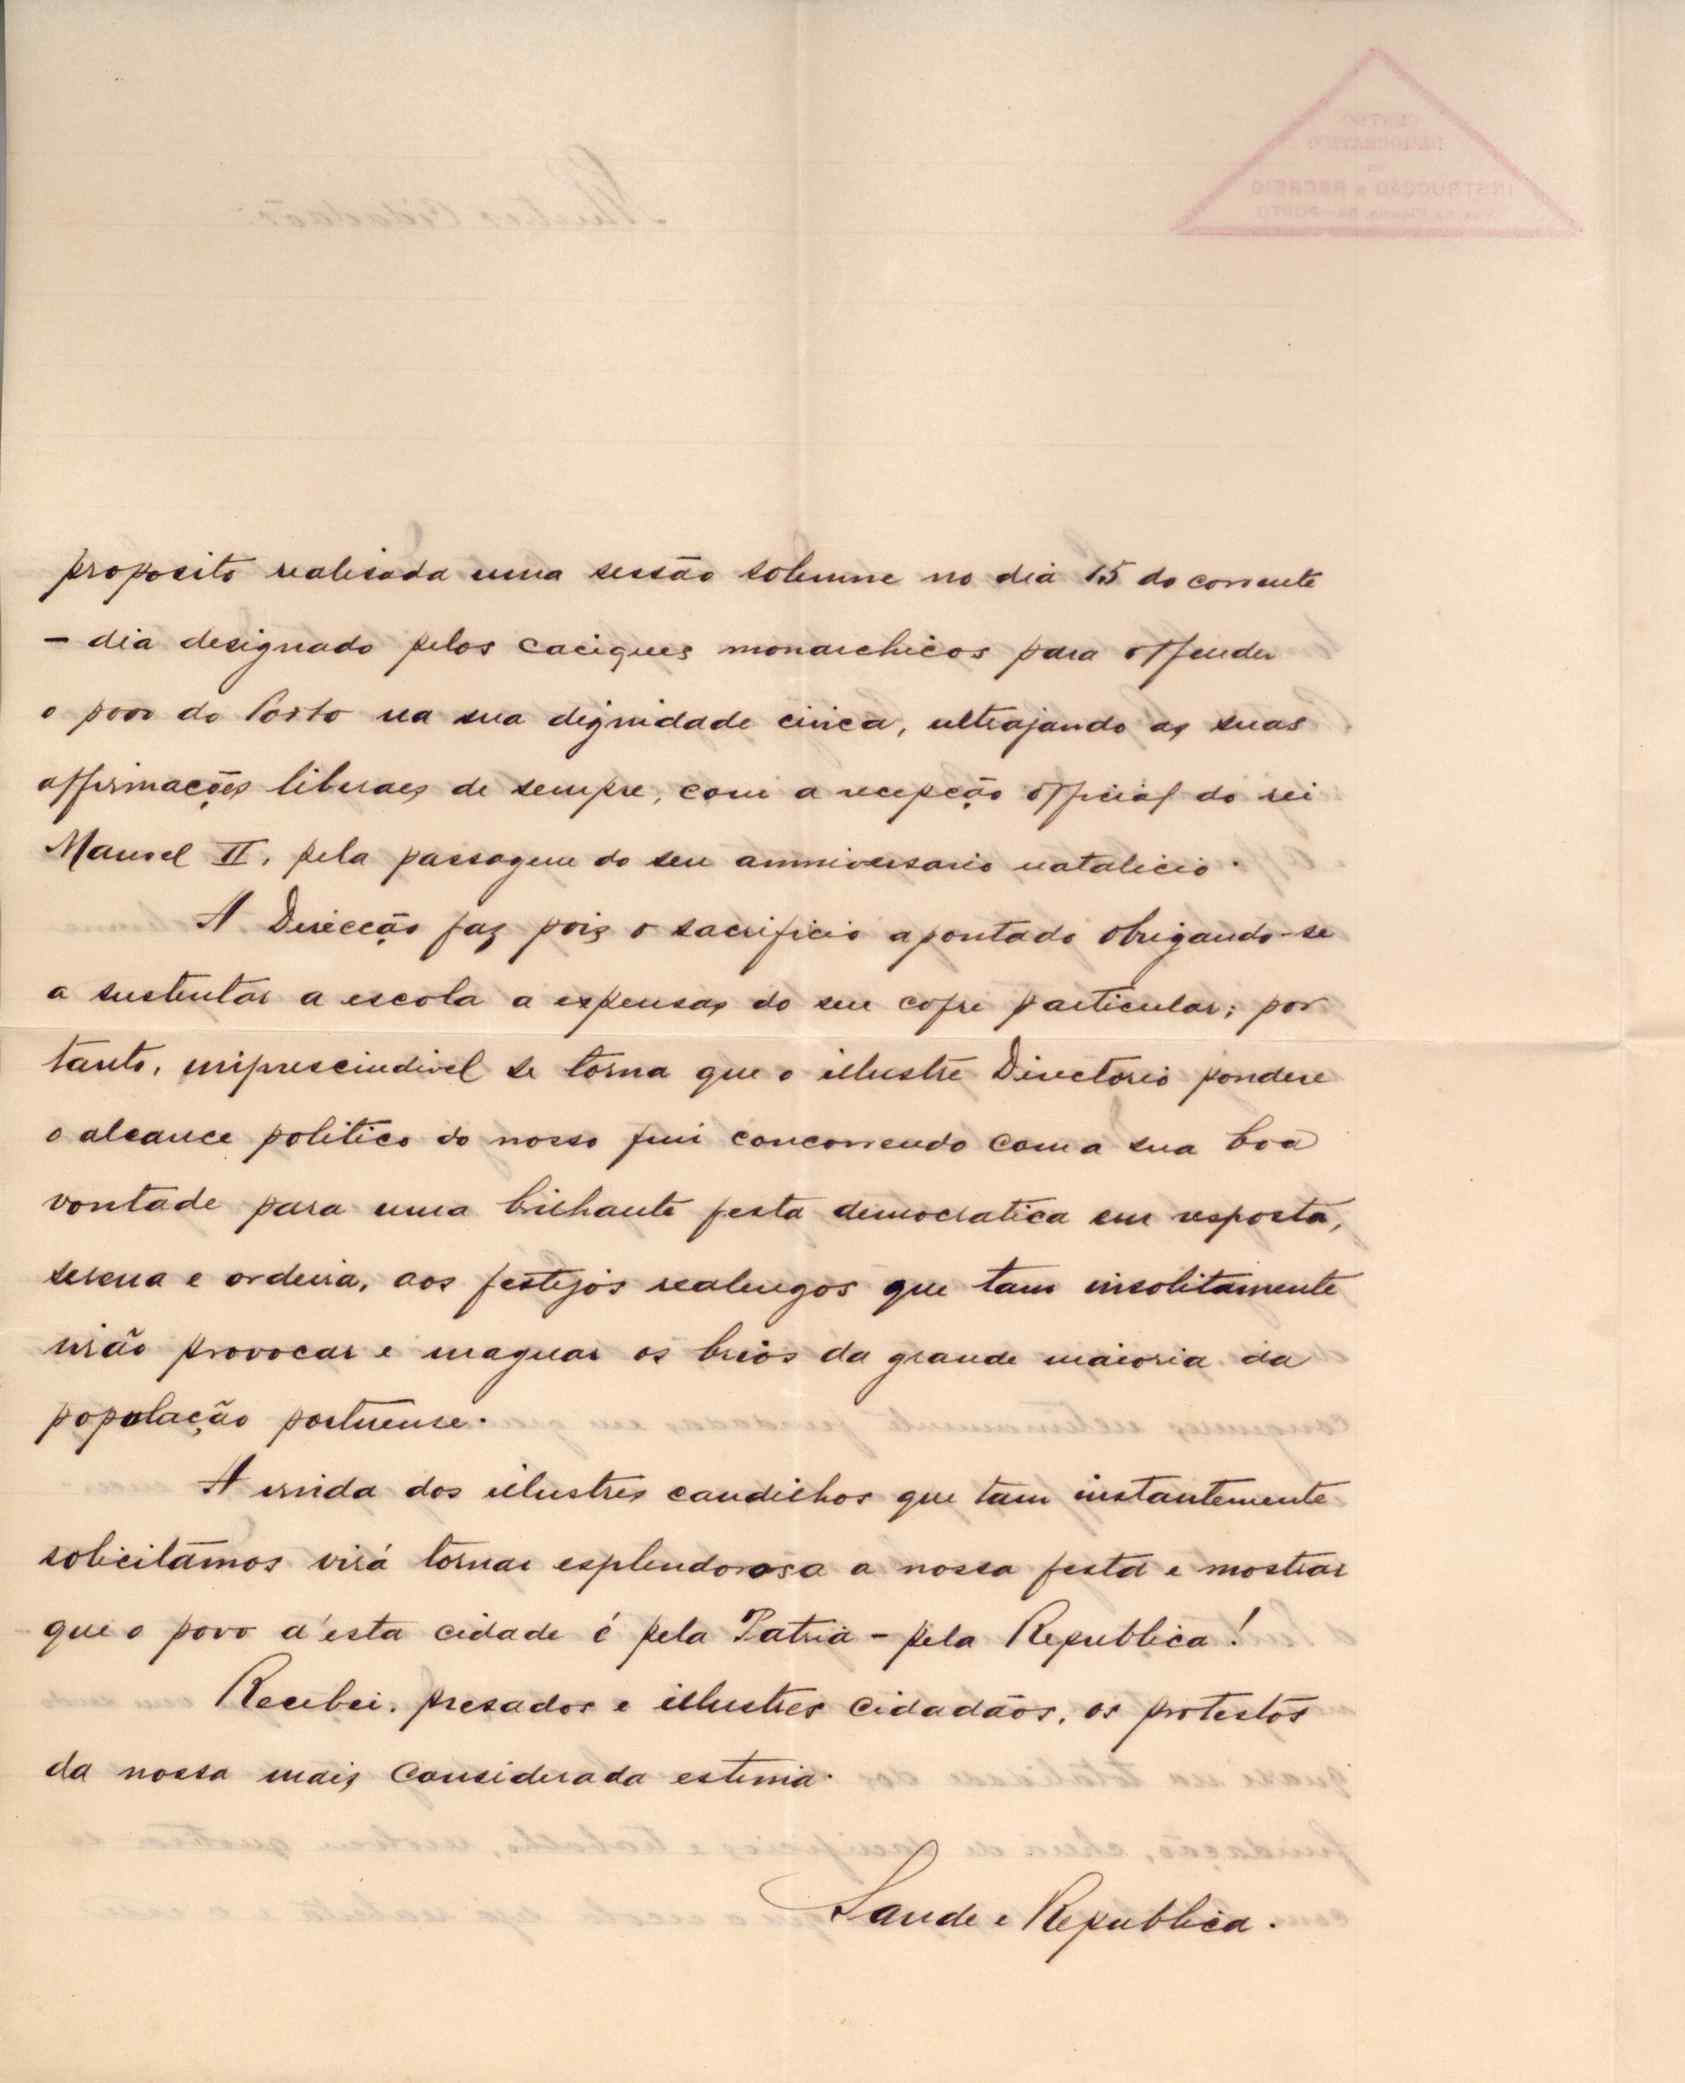 proposito realisada uma sessão solemne no dia 15 do corrente
– dia designado pelos caciques monarchicos para offender
o povo do Porto na sua dignidade civica, ultrajando as suas
affirmações liberaes de sempre, com a recepção official do rei
Manoel II, pela passagem do seu anniversario natalicio.
A Direcção faz pois o sacrificio apontado obrigando-se
a sustentar a escola a expensas do seu cofre particular; por
tanto, imprescindivel se torna que o illustre Directorio pondere
o alcance politico do nosso fim concorrendo com a sua boa
vontade para uma brilhante festa democratica em resposta,
serena e ordeira, aos festejos realengos que tam insolitamente
virão provocar e maguar os brios da grande maioria da
população portuense.
A vinda dos illustres caudilhos que tam instantemente
solicitâmos virá tornar esplendorosa a nossa festa e mostrar
que o povo d'esta cidade é pela Patria – pela Republica!
Recebei, presados e illustres cidadãos, os protestos
da nossa mais considerada estima.
Saude e Republica.